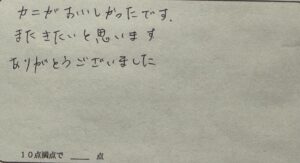 カニがおいしかったです.
またきたいと思います
ありがとうございました
10点満点で ___ 点